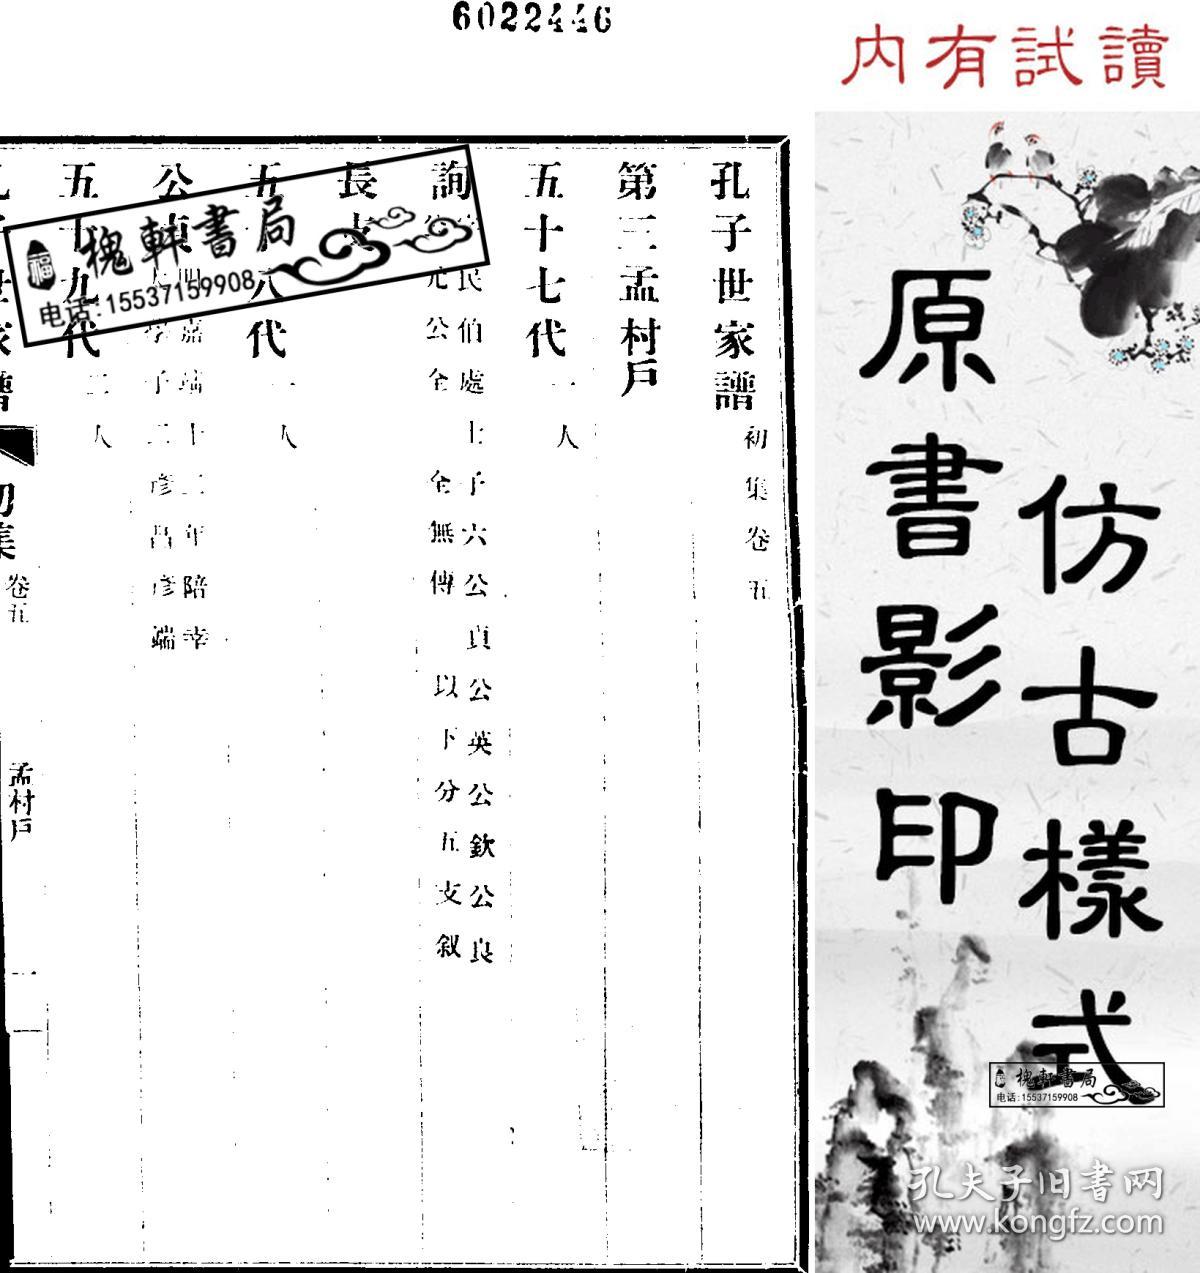 6022446
內有試讀
孔子世家譜
初集卷五
第三孟村戶
五十七代
一人
詢
民伯處士子六公貞公英公欽公良
公全 全無傳 以下分五支叙
長支
五 八代
一人
公
明嘉靖十二年陪幸
學子二彥昌彥端
五十九代
二人
初集
卷五
孟村戶
一
槐軒書局
福
电话:15537159908
仿古樣式
原書影印
槐軒書局
电话:15537159908
孔夫子旧书网
www.kongfz.com